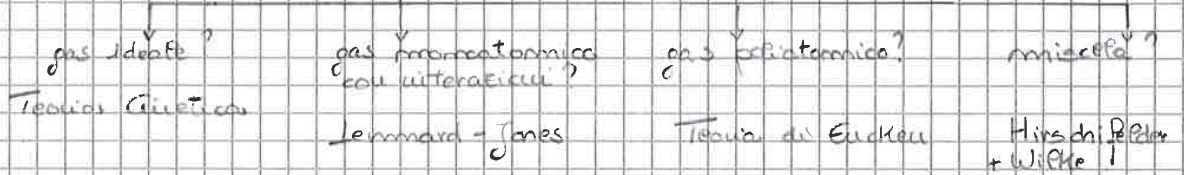 gas ideale?
Teoria Cinetica
gas monoatomico
con interazioni?
Lennard-Jones
gas poliatomico?
Teoria di Eucken
miscela?
Hirschfelder
+ Wilke!